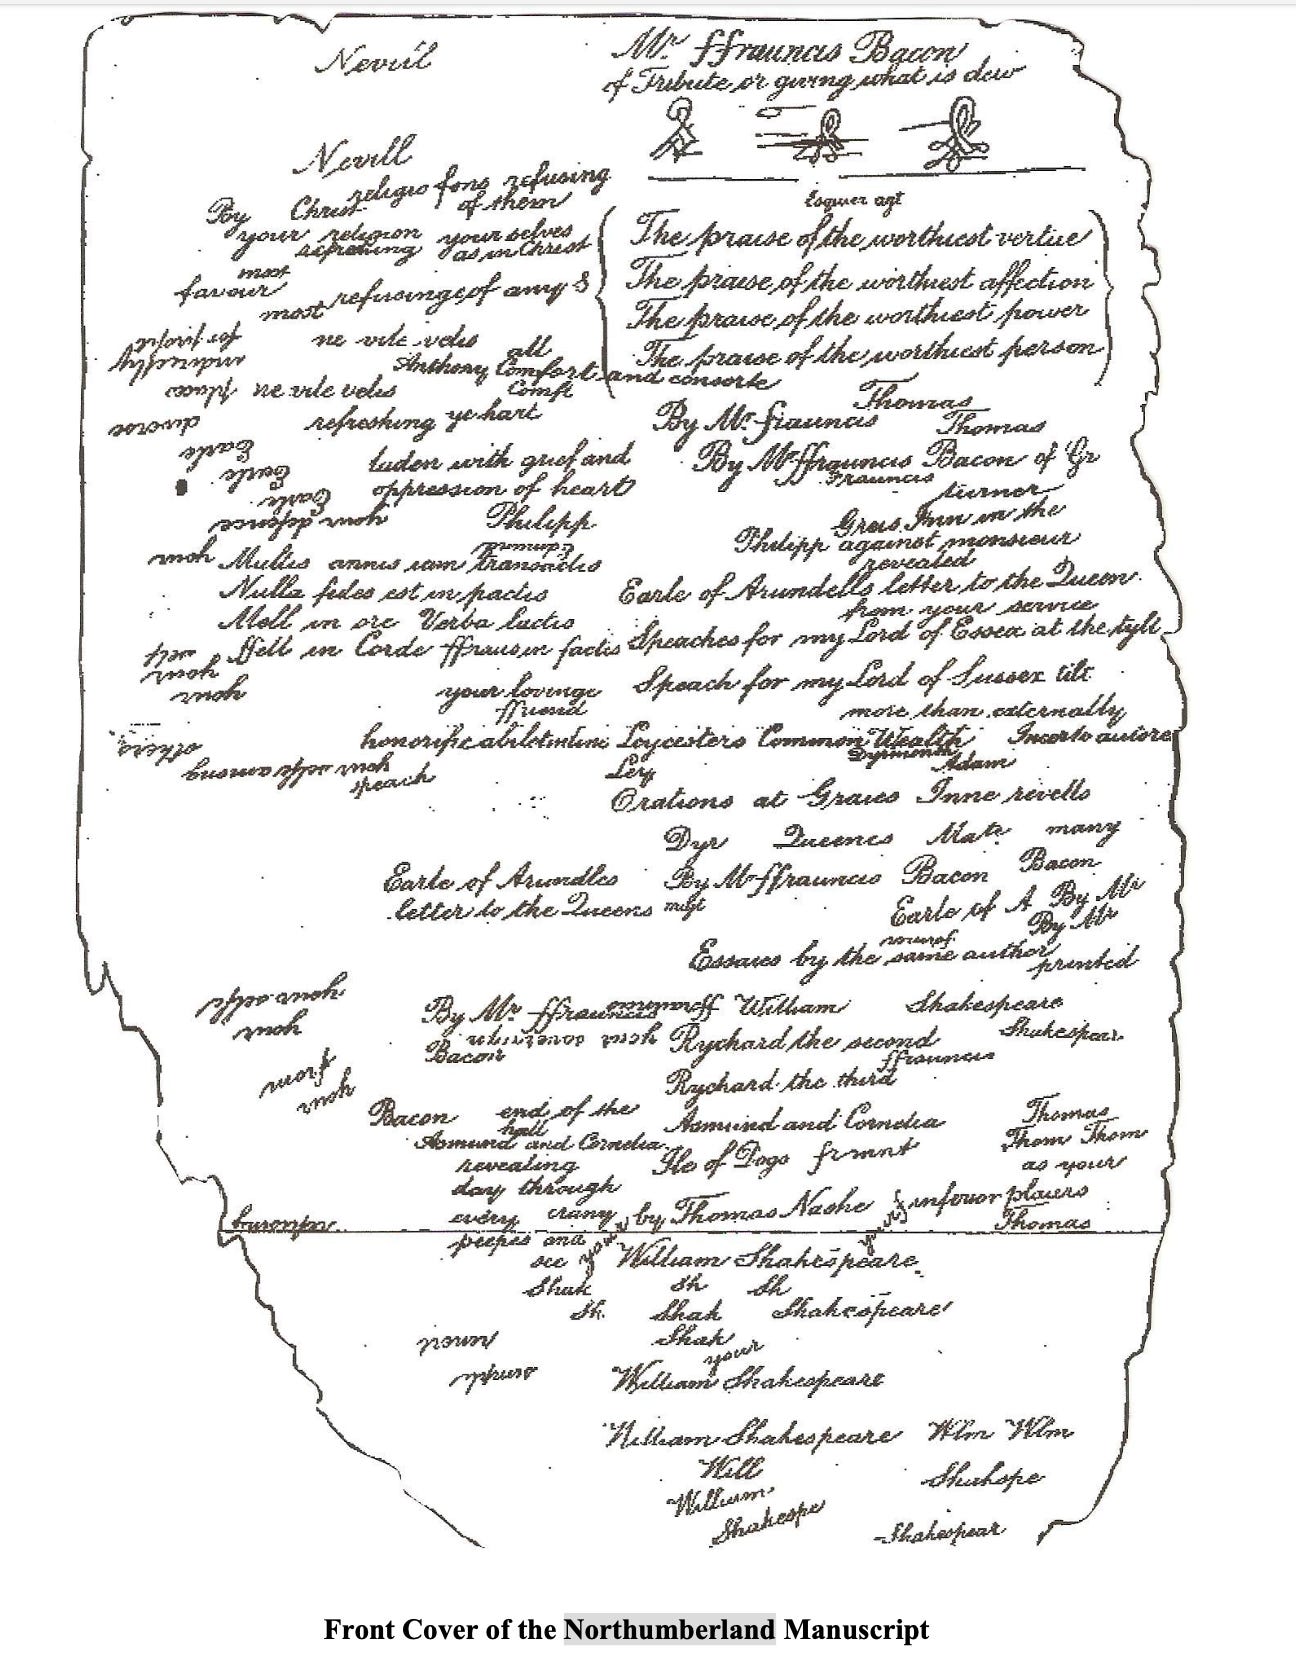 Nevill
Mr ffrauncis Bacon
of Tribute or giving what is dew
Nevill
religio fons refusing
By Christ of them
your religion your selves
refreshing as in Christ
Esquier agt
The praise of the worthiest vertue
The praise of the worthiest affection
The praise of the worthiest power
The praise of the worthiest person
most
favour
most refusinge of any
ne vile velis
all
Anthony Comfort and consorte
ne vile velis Comft
refreshing ye hart
Thomas
By Mr. ffrauncis Thomas
laden with grief and
oppression of heart
By Mr ffrauncis Bacon of Gr
ffrauncis
turner
Earle
Earle
Earle
your defence
Philipp
Edmund
Graies Inn in the
Philipp against monsieur
revealed
Multis annis iam transactis
Nulla fides est in pactis
Mell in ore Verba lactis
ffell in Corde ffraus in factis
Earle of Arundells letter to the Queen
from your service
Speaches for my Lord of Essex at the tylt
your
your
your lovinge
ffriend
Speach for my Lord of Sussex tilt
more than externally
honorificabiletudine Leycesters Common Wealth Incerto autore
Dyrmonth
Ley Adam
speach
Orations at Graies Inne revells
Dyr Queenes Mate many
Earle of Arundles
letter to the Queens matie
By Mr ffrauncis Bacon Bacon
Earle of A By Mr
By Mr
Essaies by the same author
printed
By Mr ffrauncis William Shakespeare
Bacon
your sovereign
Rychard the second Shakespear
ffrauncis
Rychard the third
your selfe
your
from
your
Bacon end of the
hall
Asmund and Cornelia Thomas
Asmund and Cornelia
Thom Thom
revealing
Ile of Dogs frmnt
as your
day through
every crany
peepes and
see
by Thomas Nashe inferior plaiers
Thomas
your
your
William Shakespeare
Shak Sh Sh
Sh. Shak Shakespeare
Shak
your
William Shakespeare
William Shakespeare Wlm Wlm
Will
Shakspe
William
Shakespe
Shakespear
Front Cover of the Northumberland Manuscript